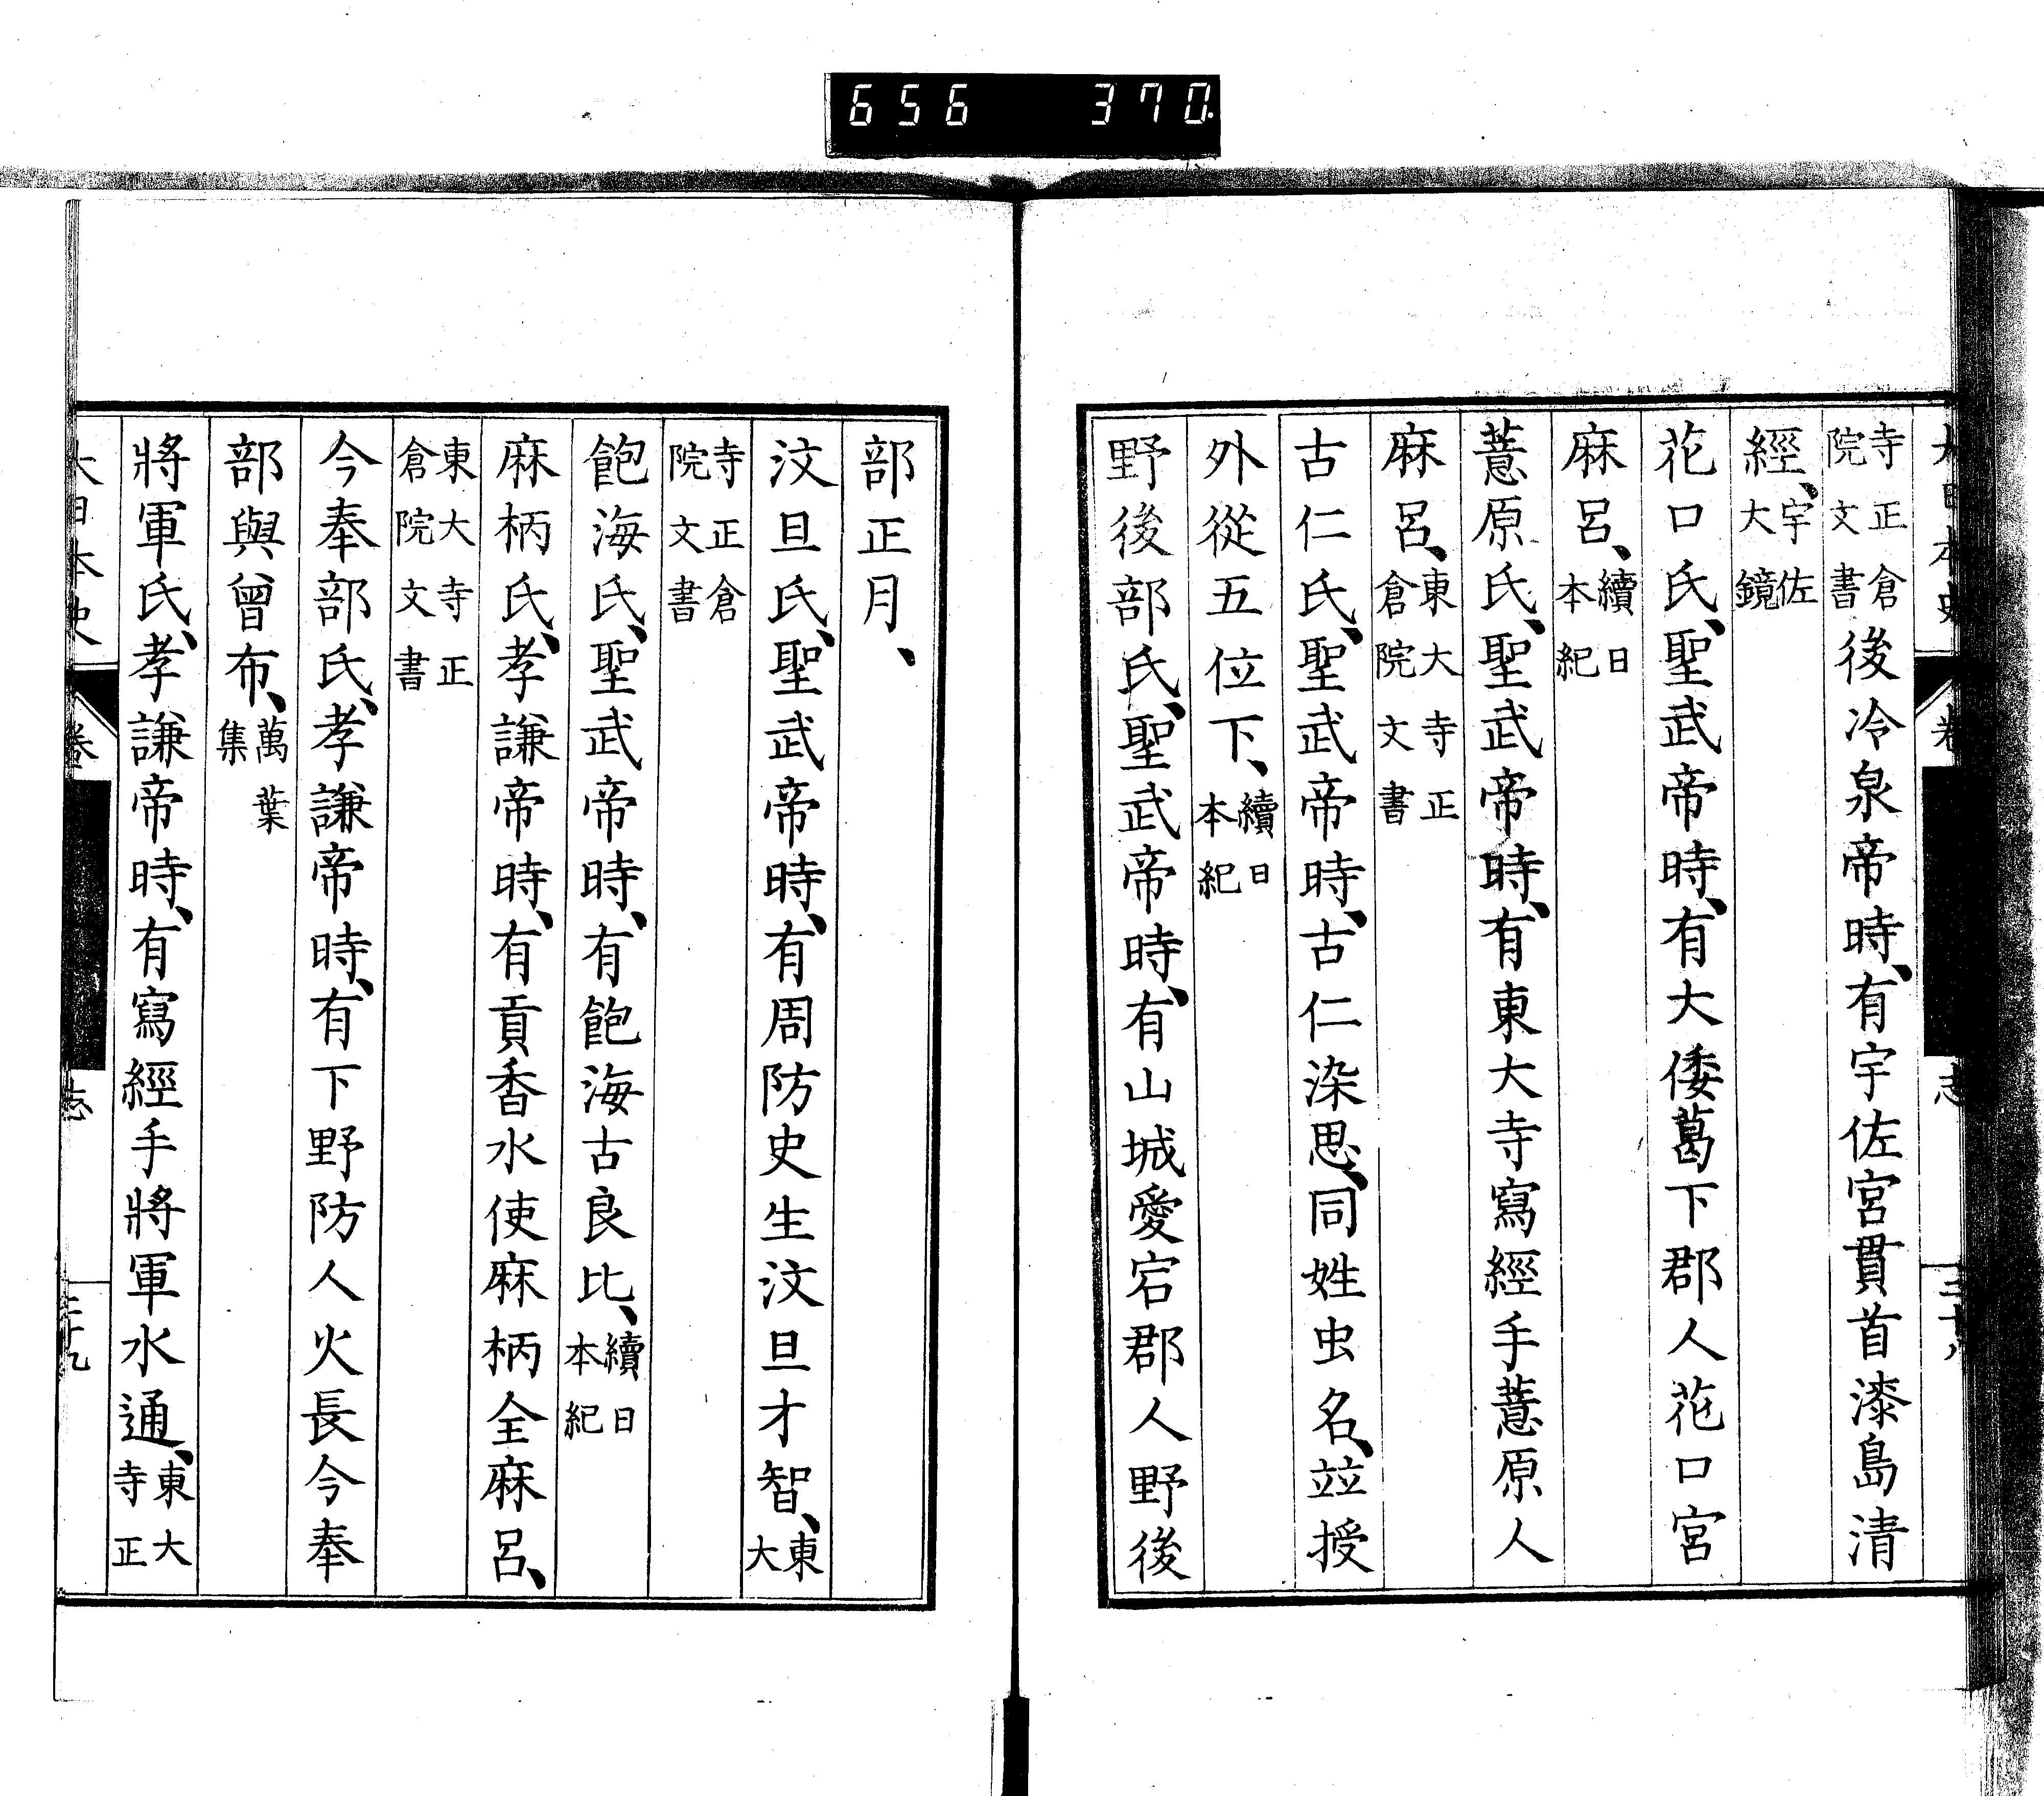 656 370
大日本史 卷 志 三十八
寺正倉院文書後冷泉帝時、有宇佐宮貫首漆島清
經、宇佐大鏡
花口氏、聖武帝時、有大倭葛下郡人花口宮
麻呂、續日本紀
薏原氏、聖武帝時、有東大寺寫經手薏原人
麻呂、東大寺正倉院文書
古仁氏、聖武帝時、古仁染思、同姓虫名、竝授
外從五位下、續日本紀
野後部氏、聖武帝時、有山城愛宕郡人野後
部正月、
汶旦氏、聖武帝時、有周防史生汶旦才智、東大
寺正倉院文書
飽海氏、聖武帝時、有飽海古良比、續日本紀
麻柄氏、孝謙帝時、有貢香水使麻柄全麻呂、
東大寺正倉院文書
今奉部氏、孝謙帝時、有下野防人火長今奉
部與曾布、萬葉集
將軍氏、孝謙帝時、有寫經手將軍水通、東大寺正
大日本史 卷 志 三十九